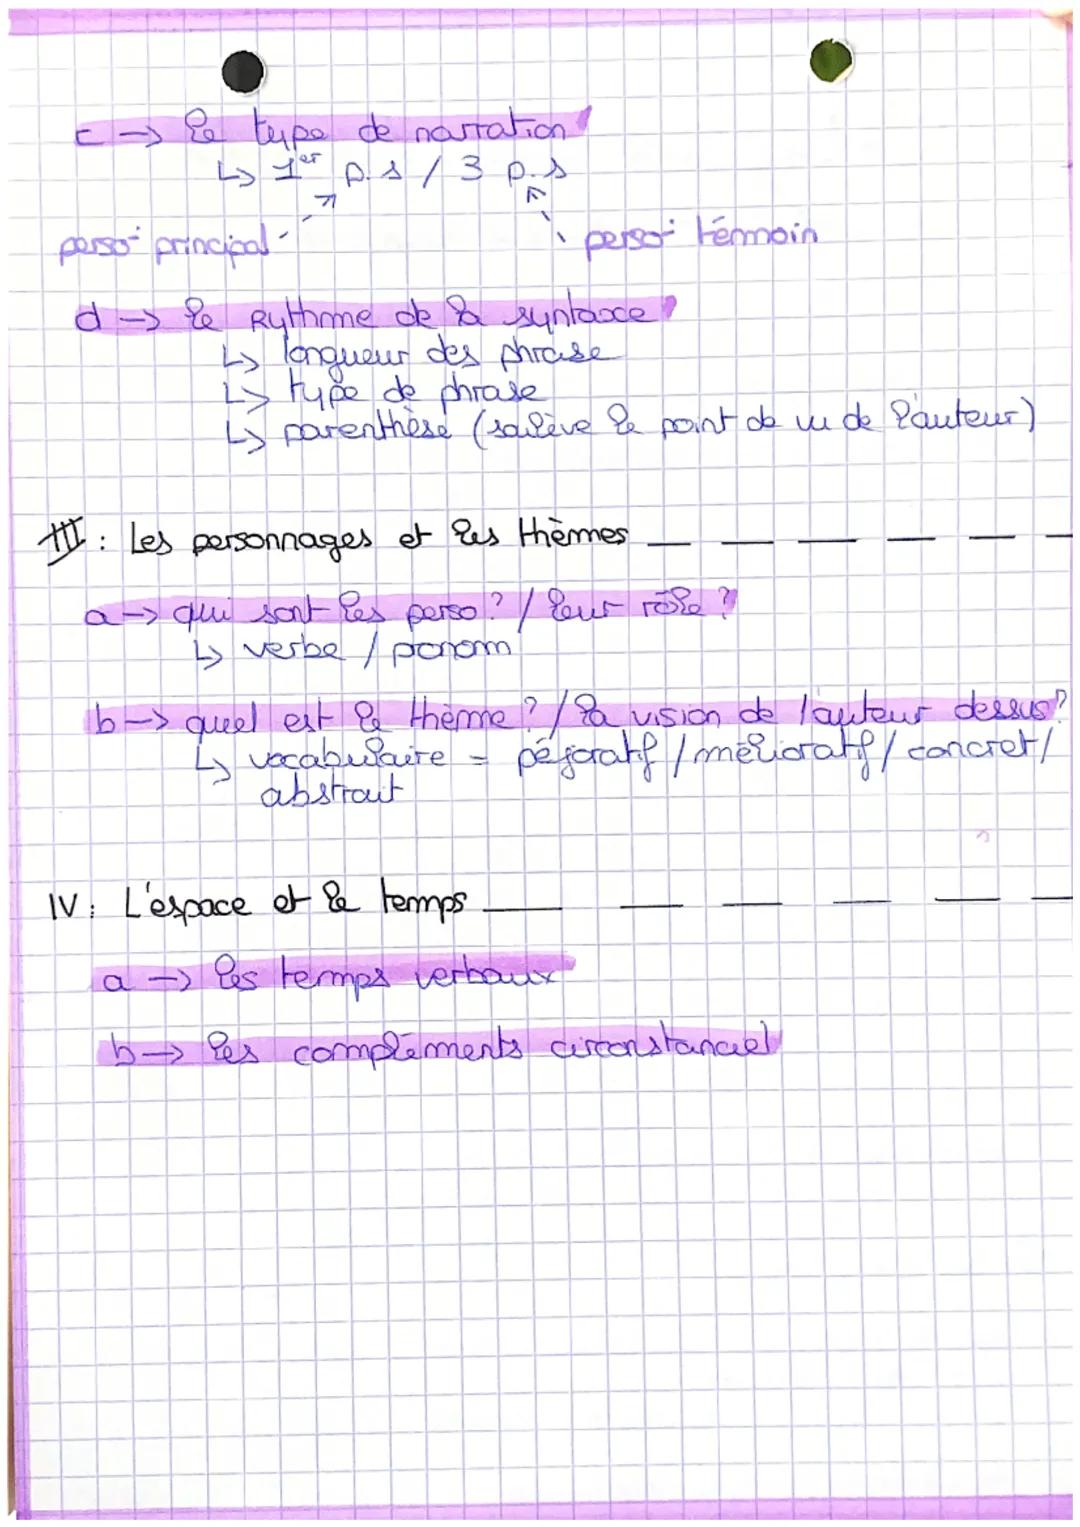 c → le type de narration
↳ 1er p.s / 3 p.s
perso principal
perso témoin
d → le Rythme de la syntaxe
↳ longueur des phrase
↳ type de phrase
↳ parenthèse (soulève le point de vu de l'auteur)
III : Les personnages et les thèmes
a → qui sont les perso ? / leur rôle ?
↳ verbe / ponom
b → quel est le thème ? / la vision de l'auteur dessus ?
↳ vocabulaire = péjoratif / mélioratif / concret /
abstrait
IV : L'espace et le temps
a → les temps verbaux
b → les compléments circonstanciel